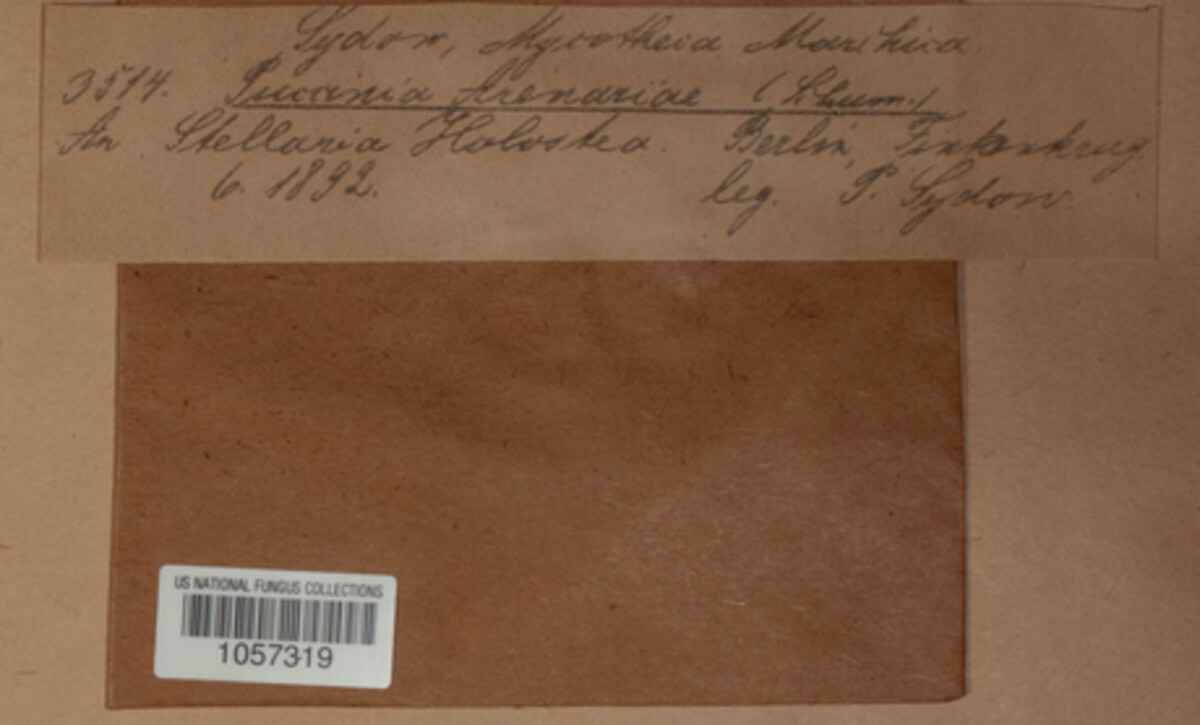 Sydow, Mycotheca Marchica.
3514. Puccinia Arenariae (Schum.)
An Stellaria Holostea. Berlin, Finkenkrug.
6. 1892. leg. P. Sydow
US NATIONAL FUNGUS COLLECTIONS
1057319